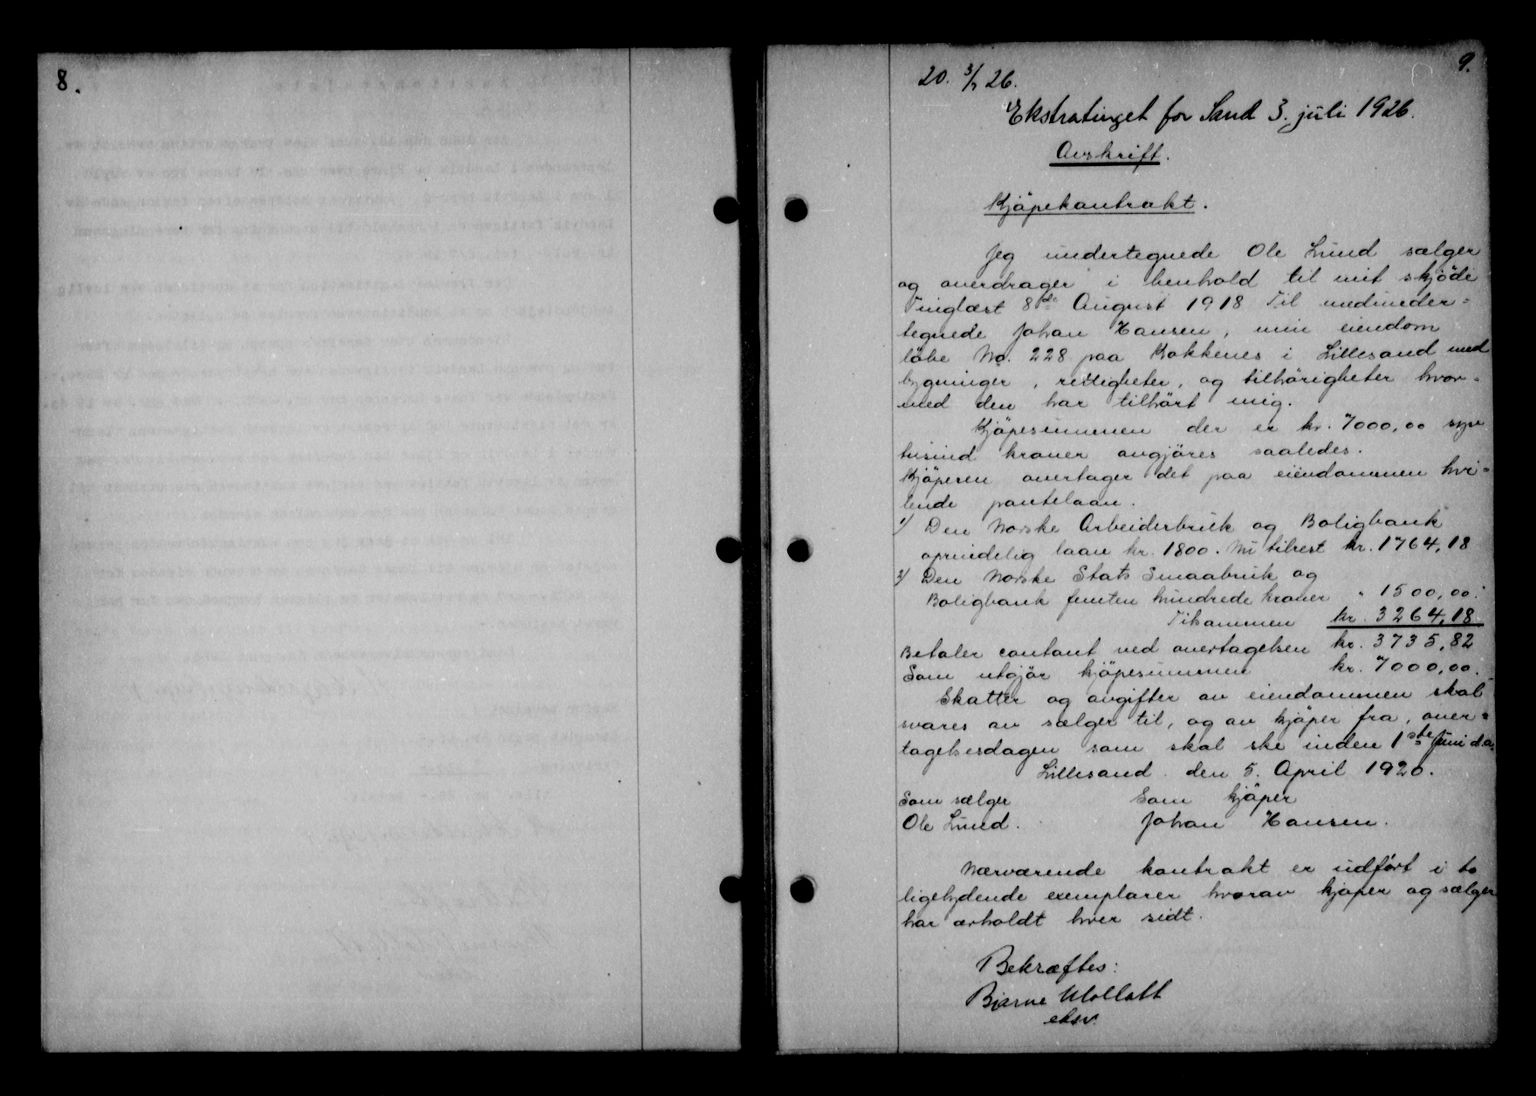 8.
9.
20. 3/7 26.
Ekstratinget for Sand 3. juli 1926.
Avskrift.
Kjöpekontrakt.
Jeg undertegnede Ole Lund sælger
og overdrager i henhold til mit skjöde
Tinglæst 8de August 1918 Til medunder-
tegnede Johan Hansen, min eiendom
löbe No. 228 paa Kokkenes i Lillesand med
bygninger, rettigheter, og tilhörigheter hvor-
med den har tilhört mig.
Kjöpesummen der er kr. 7000,00 syv
tusind kroner avgjöres saaledes.
Kjöperen overtager det paa eiendommen hvi-
lende pantelaan.
1/ Den Norske Arbeiderbruk og Boligbank
oprindelig laan kr. 1800. Nu tilrest kr. 1764,18
2/ Den Norske Stats Smaabruk og
Boligbank femten hundrede kroner " 1500,00.
Tilsammen kr. 3264,18
Betaler contant ved overtagelsen kr. 3735,82
Som utgjör kjöpesummen kr. 7000,00.
Skatter og avgifter av eiendommen skal
svares av sælger til, og av kjöper fra, over-
tagelsesdagen som skal ske inden 1ste Juni d.a.
Lillesand den 5. April 1920.
Som sælger Som kjöper
Ole Lund. Johan Hansen.
Nærværende kontrakt er udfört i to
ligelydende exemplarer hvorav kjöper og sælger
har erholdt hver sidt.
Bekræftes:
Bjarne
eksv.